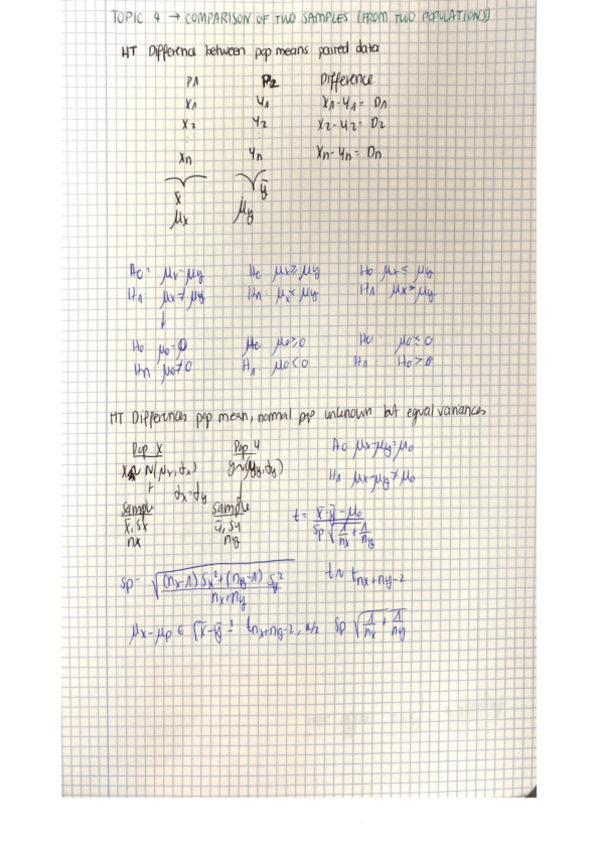 TOPIC 4 → COMPARISON OF TWO SAMPLES (FROM TWO POPULATIONS)
HT Difference between pop means paired data
P1 P2 Difference
X1 Y1 X1-Y1 = D1
X2 Y2 X2-Y2 = D2
Xn Yn Xn-Yn = Dn
x̄ ȳ
μx μy
Ho = μx-μy Ho μx≥μy Ho μx≤μy
H1 μx≠μy H1 μx<μy H1 μx>μy
↓
Ho μo=0 Ho μo≥0 Ho μo≤0
H1 μo≠0 H1 μo<0 H1 Ho>0
HT Differences pop mean, normal pop unknown but equal variances
Pop X Pop Y Ho μx-μy=μo
X~N(μx,σx) y~(μy,σy)
H1 μx-μy≠μo
σx=σy
sample sample
x̄, sx ȳ, sy
nx ny
t = x̄-ȳ-μo / sp √(1/nx + 1/ny)
sp = √((nx-1) Sx² + (ny-1) Sy² / nx+ny) t ~ tnx+ny-2
μx-μp ∈ [x̄-ȳ ± tnx+ny-2, α/2 sp √(1/nx + 1/ny)